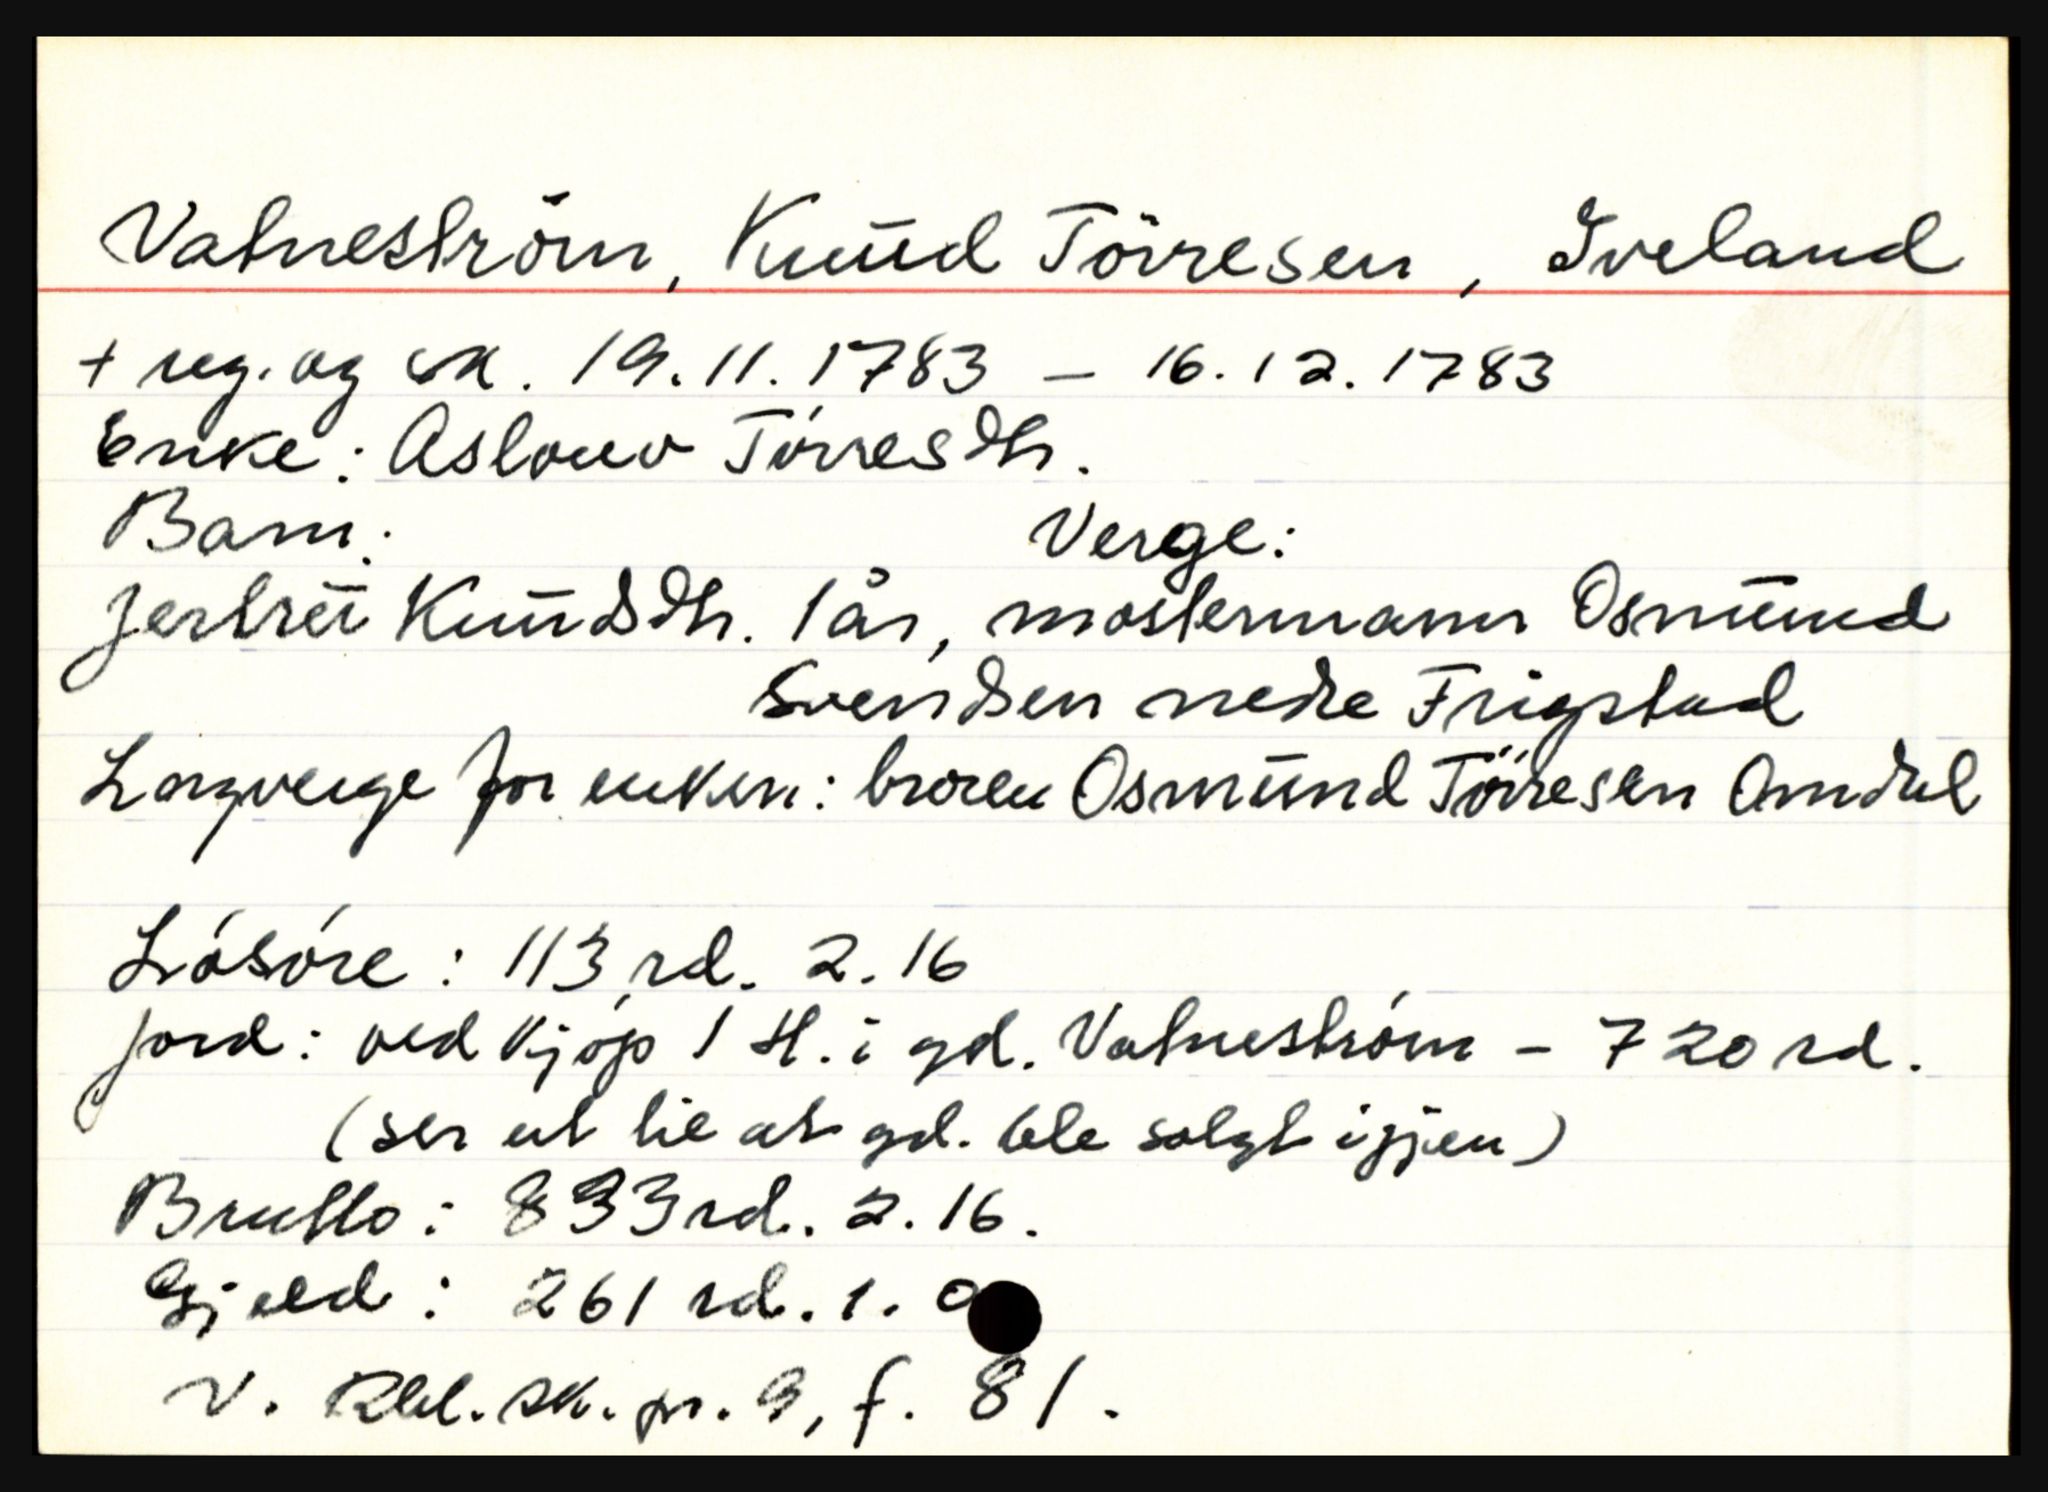 Vatneström, Knud Törresen, Iveland
+ reg. og sk. 19.11.1783 – 16.12.1783
Enke: Aslouv Törresdtr.
Barn: Verge:
Jertrü Knüdsdtr. 1 år, mostermann Osmünd
Svendsen nedre Frigstad
Lagverge for enken: broren Osmünd Törresen Omdal
Lösöre: 113 rd. 2.16
Jord: ved kjöp 1 H. i gd. Vatneström – 720 rd.
(ser ut lie at gd. ble solgt igjen)
Brutto: 833 rd. 2.16.
Gjeld: 261 rd. 1. 0
V. Rbl. sk. pr. 9, f. 81.